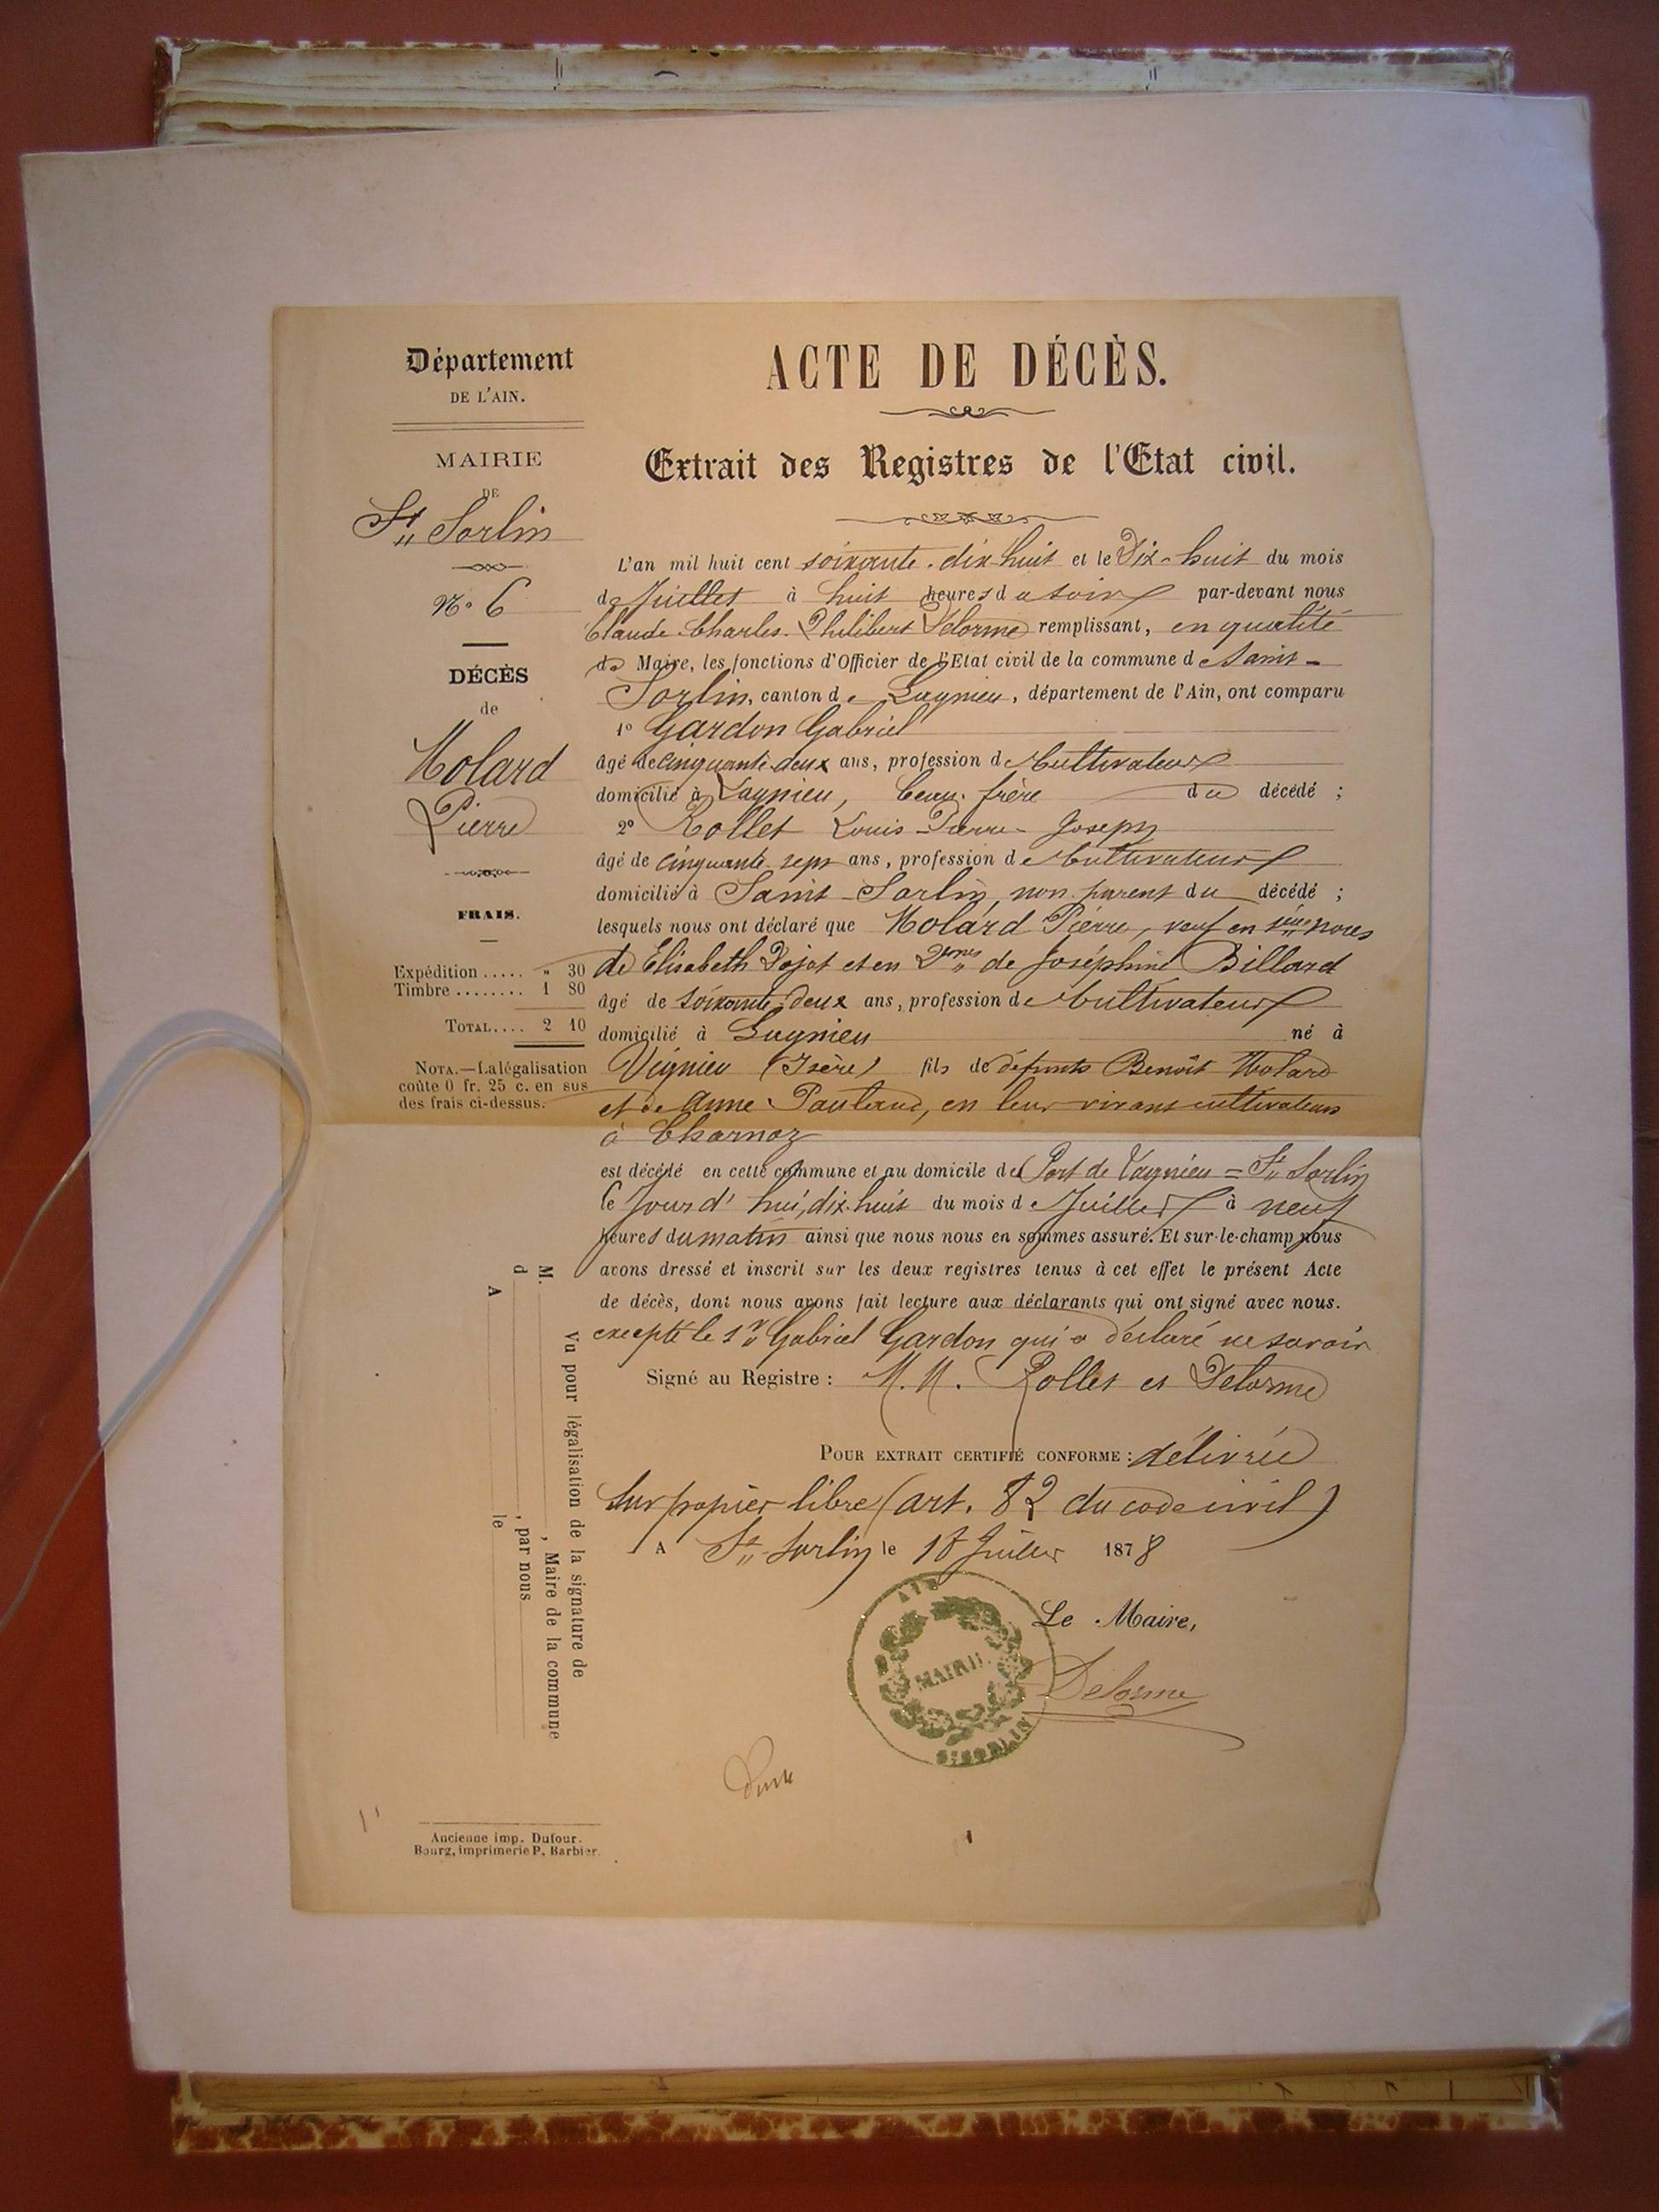 Département
DE L'AIN.
MAIRIE
DE
St Sorlin
No 6
DÉCÈS
de
Molard
Pierre
FRAIS.
Expédition ..... " 30
Timbre ........ 1 80
TOTAL.... 2 10
NOTA.—La légalisation
coûte 0 fr. 25 c. en sus
des frais ci-dessus.
ACTE DE DÉCÈS.
Extrait des Registres de l'Etat civil.
L'an mil huit cent soixante-dix-huit et le Dix-huit du mois
de Juillet à huit heures du soir par-devant nous
Claude-Charles-Philibert Delorme remplissant, en qualité
de Maire, les fonctions d'Officier de l'Etat civil de la commune de Saint-
Sorlin, canton de Lagnieu, département de l'Ain, ont comparu
1o Gardon Gabriel
âgé de cinquante-deux ans, profession de Cultivateur
domicilié à Lagnieu, beau-frère du décédé ;
2o Rollet Louis-Pierre-Joseph
âgé de cinquante-sept ans, profession de Cultivateur
domicilié à Saint-Sorlin, non parent du décédé ;
lesquels nous ont déclaré que Molard Pierre, veuf en 1ères noces
de Elisabeth Dojat et en 2èmes de Joséphine Billard
âgé de soixante-deux ans, profession de Cultivateur
domicilié à Lagnieu né à
Veignieu (Isère) fils de défunts Benoît Molard
et de Anne, en leur vivant cultivateurs
à Charnoz
est décédé en cette commune et au domicile de Port de Lagnieu = St Sorlin
le Jour d'hui, dix-huit du mois de Juillet à neuf
heures du matin ainsi que nous nous en sommes assuré. Et sur-le-champ nous
avons dressé et inscrit sur les deux registres tenus à cet effet le présent Acte
de décès, dont nous avons fait lecture aux déclarants qui ont signé avec nous.
excepté le 1er Gabriel Gardon qui a déclaré ne savoir
Signé au Registre : M. M. Rollet et Delorme
POUR EXTRAIT CERTIFIÉ CONFORME : délivrée
sur papier libre (art. 82 du code civil)
A St Sorlin le 18 Juillet 1878
Le Maire,
Delorme
AIN
MAIRIE
ST SORLIN
Vu pour légalisation de la signature de
M. , Maire de la commune
d , par nous
A le
Ancienne imp. Dufour.
Bourg, imprimerie P. Barbier.